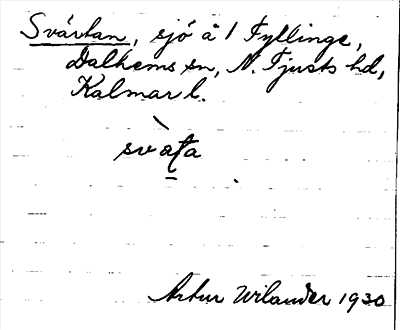 Svårtan, sjö å 1 Fyllinge,
Dalhems sn, N. Tjusts hd,
Kalmar l.
svàta
Artur Wilander 1930